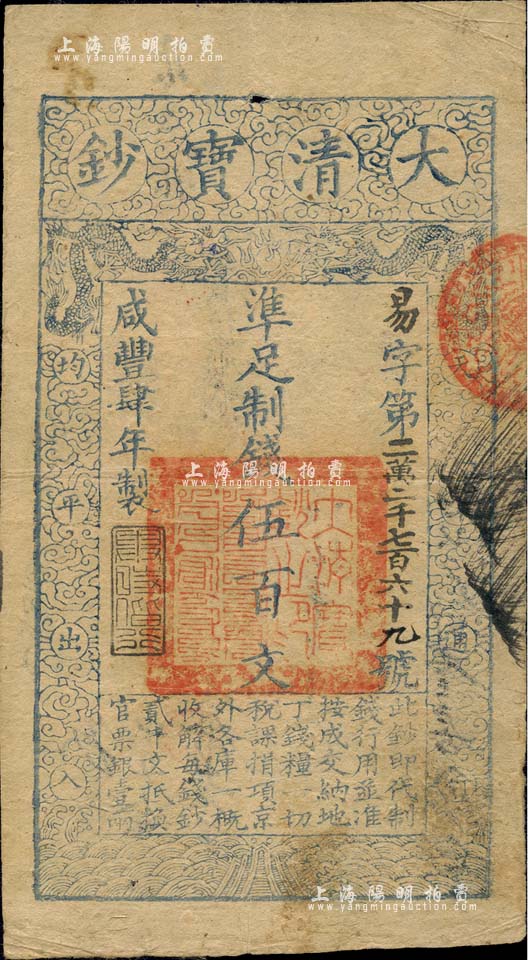 上海陽明拍賣
www.yangmingauction.com
大清寶鈔
易字第二萬二千七百六十九號
準足制錢伍百文
咸豐肆年製
均平出入
通行
此鈔即代制
錢行用並准
按成交納地
丁錢糧一切
稅課捐項京
外各庫一概
收解每錢鈔
貳千文抵換
官票銀壹兩
上海陽明拍賣
www.yangmingauction.com
上海陽明拍賣
www.yangmingauction.com